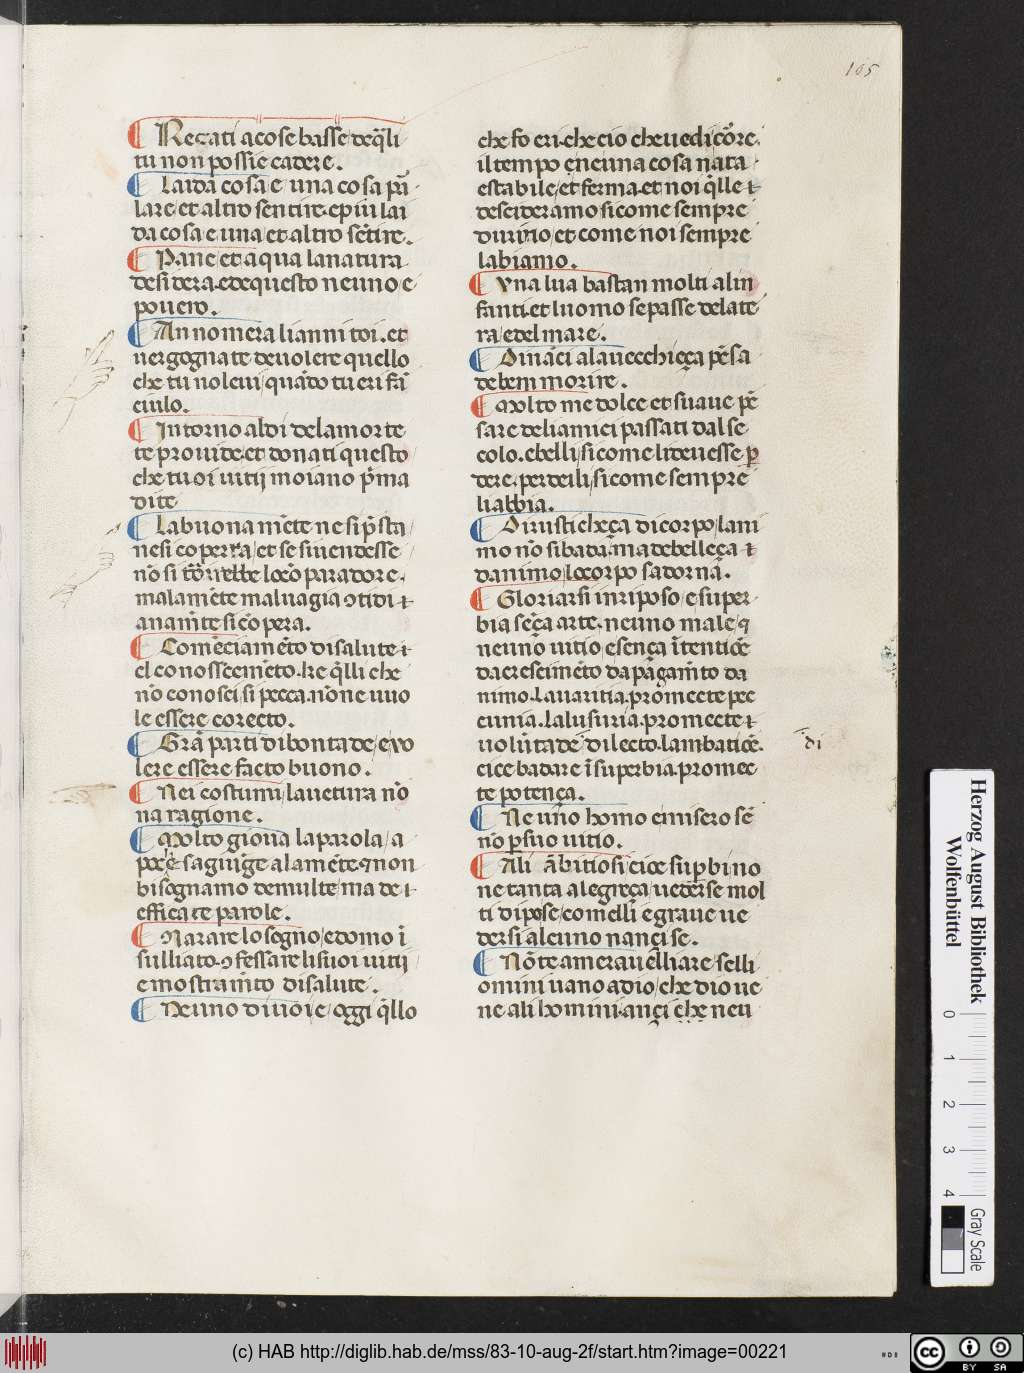 165
Recati a cose basse deq̃li
tu non possie cadere.
Laida cosa e una cosa pã
lare et altro sentire. epiu lai
da cosa e una et altro sẽtire.
Pane et aqua la natura
desidera. edequesto neuno e
povero.
Annomera lianni toi. et
uergognate deuolere quello
che tu uoleui quãdo tu eri fã
ciulo.
Intorno aldi dela morte
te prouide. et donati questo
che tuoi uitij moiano p̃ma
dite
La buona mẽte ne si p̃sta
ne si coperra et se si uendesse
nõ si locõ paradore.
malamẽte maluagia ɔtidi
anamẽte si cõpera.
Comẽciamẽto disalute
el conoscemẽto. ke q̃lli che
nõ conosci si pecca. nõne uuo
le essere corecto.
Grã parti di bontade e uo
lere essere facto buono.
Nei costumi la uetura nõ
na ragione.
Molto gioua la parola a
saguige ala mẽte. non
bisognamo de multe ma de
efficace parole.
Narare lo sogno e domo ĩ
suiliato. ɔfessare li suoi uitij
e mostramẽto disalute.
Neuno diuoi e oggi q̃llo
che fo eri. che cio che uedi cõre.
il tempo e neuna cosa nata
e stabile et ferma. et noi q̃lle
desideramo si come sempre
et come noi sempre
labiamo.
Una lua bastan molti alin
fanti. et luomo se passe dela te
ra edel mare.
Dinãci ala uecchieça pẽsa
debem morire.
Molto me dolce et suaue pẽ
sare deli amici passati dal se
colo. ebelli si come li deuesse p
dere. perdeili si come sempre
li abbia.
Di rusticheça di corpo lani
mo nõ si bada. ma debelleça
danimo lo corpo sadorna.
Gloriarsi in riposo e super
bia seça arte. neuno male
neuno uitio e sença ĩtentiõe
dacrescimẽto da pagamẽto da
nimo. Lauaritia promecte pec
cunia. La lusuria promecte
uolũtade dilecto. lambatiõe.
di
cice badare ĩ superbia promec
te potença.
Neuno homo e misero se
nõ p suo uitio.
Ali ãbitiosi cioe supbi no
ne tanta alegreça uedẽrse mol
ti dipose, comelli e graue ue
dersi alcuno nançi se.
Nõ te amerauelliare selli
omini uano a dio che dio ue
ne ali homini. ançi che neu
Herzog August Bibliothek
Wolfenbüttel
0 1 2 3 4
Gray Scale
(c) HAB http://diglib.hab.de/mss/83-10-aug-2f/start.htm?image=00221
cc BY SA